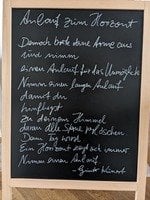 Anlauf zum Horizont
Dennoch breite deine Arme aus
und nimm
einen Anlauf für das Unmögliche
Nimm einen langen Anlauf
damit du
hinfliegst
zu deinem Himmel
daran alle Sterne verlöschen
Denn Tag wird
Ein Horizont zeigt sich immer
Nimm einen Anlauf
- Günter Kunert